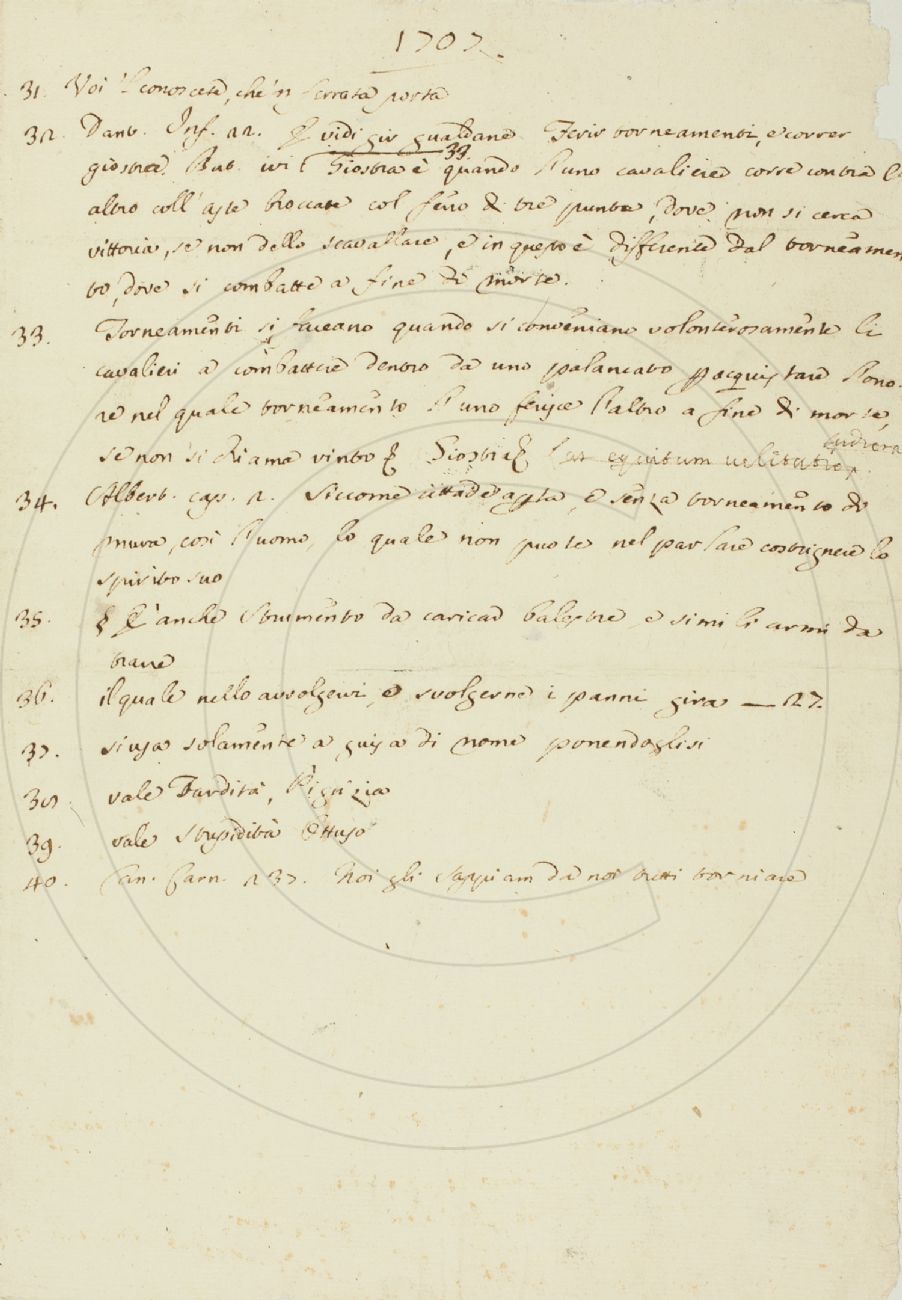 1707.
31. Voi 'l conoscete, che 'n serrata porta
32. Dant. Inf. 22. E vidi gir gualdane Ferir torneamenti, e correr
giostra. But. ivi 33 Giostra è quando l'uno cavaliere corre contra l'
altro coll'aste broccate col ferro di tre punte, dove non si cerca
vittoria, se non dello scavallare, e in questo è differente dal torneamen
to, dove si combatte a fine di morte.
33. Torneamenti si faceano quando si conveniano volonterosamente li
cavalieri a combattere dentro da uno palancato p acquistare l'ono-
re nel quale torneamento l'uno ferisce l'altro a fine di morte,
se non si chiama vinto Giostra Lat equitum velitatio
ludicra
34. Albert. cap. 2. Siccome cittade aperta, e senza torneamento di
mura, così l'uomo, lo quale non puote nel parlare costrignere lo
spirito suo
35. § E' anche strumento da caricar balestre, e simili armi da
trarre
36. il quale nello avvolgervi, o svolgerne i panni gira — 27.
37. si usa solamente a guisa di nome ponendoglisi
38. vale Tardità, Pigrizia
39. vale stupidità Ottuso
40. Can. Carn. 237. Noi gli sappiam da noi tutti torniare